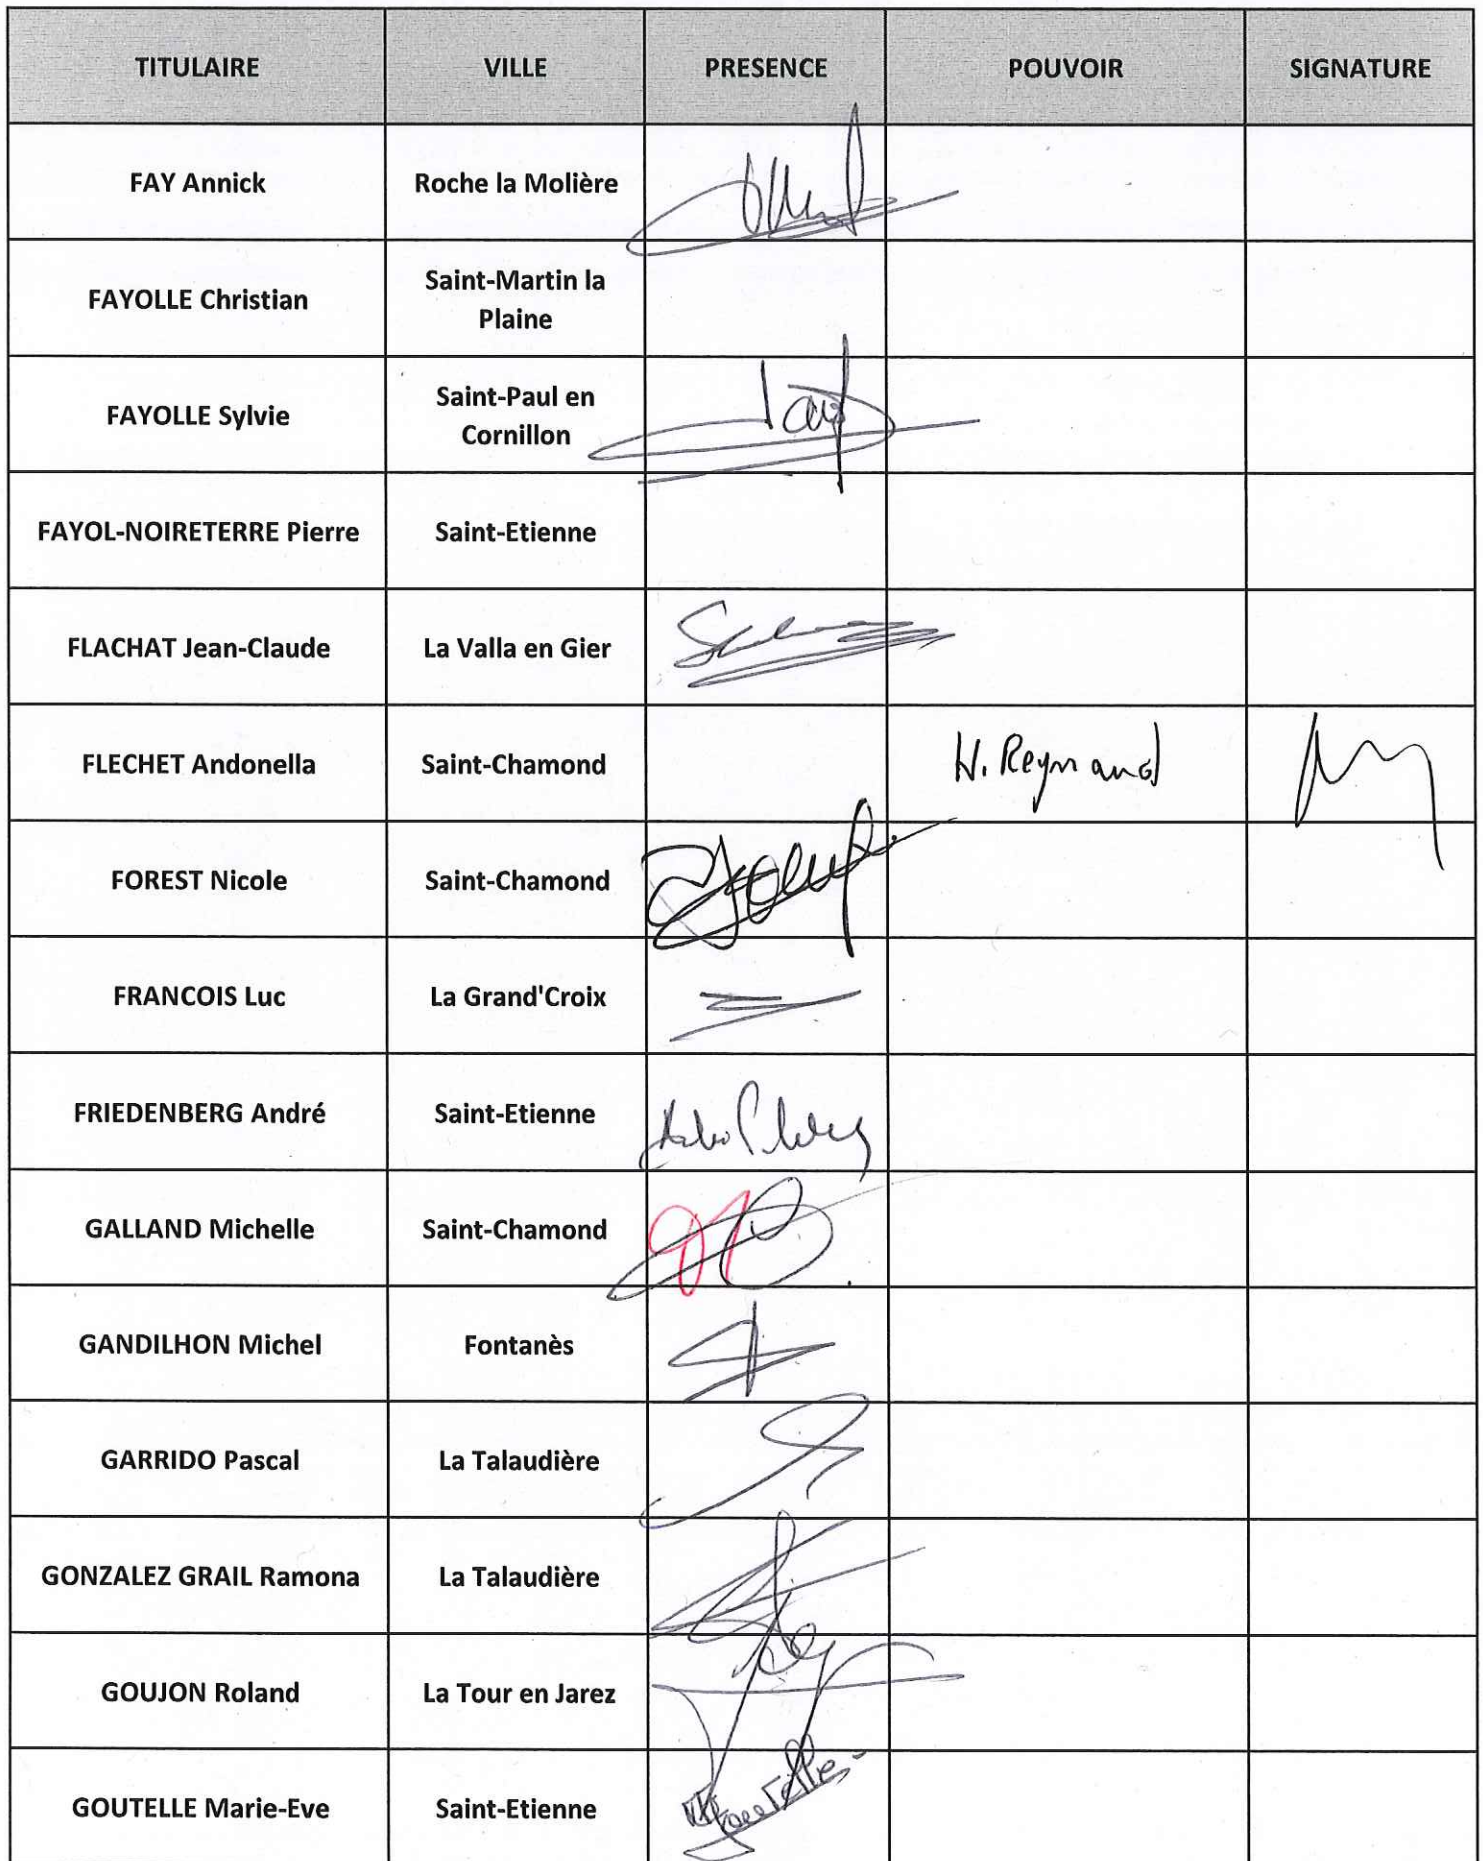 TITULAIRE VILLE PRESENCE POUVOIR SIGNATURE
FAY Annick Roche la Molière
FAYOLLE Christian Saint-Martin la
Plaine
FAYOLLE Sylvie Saint-Paul en
Cornillon
FAYOL-NOIRETERRE Pierre Saint-Etienne
FLACHAT Jean-Claude La Valla en Gier
FLECHET Andonella Saint-Chamond H. Reynaud
FOREST Nicole Saint-Chamond
FRANCOIS Luc La Grand'Croix
FRIEDENBERG André Saint-Etienne
GALLAND Michelle Saint-Chamond
GANDILHON Michel Fontanès
GARRIDO Pascal La Talaudière
GONZALEZ GRAIL Ramona La Talaudière
GOUJON Roland La Tour en Jarez
GOUTELLE Marie-Eve Saint-Etienne